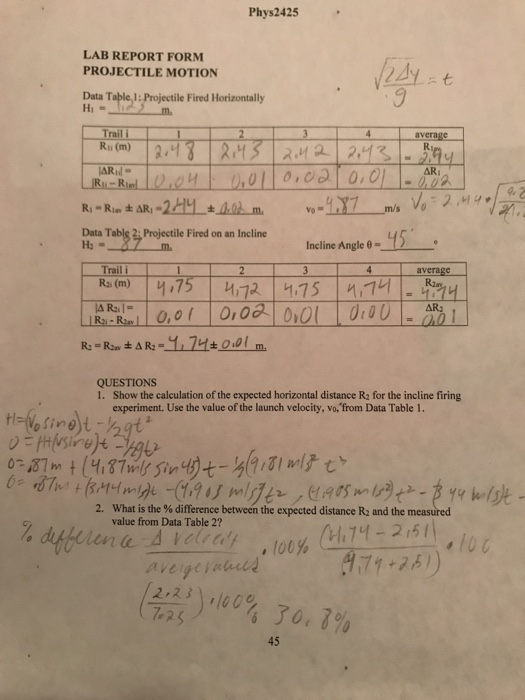 Phys2425
LAB REPORT FORM
PROJECTILE MOTION
√2Δy = t
g
Data Table 1: Projectile Fired Horizontally
H₁ = 1.23 m.
Trail i 1 2 3 4 average
R₁ᵢ (m) 2.48 2.43 2.42 2.43 R₁ₐᵥ = 2.44
|ΔR₁ᵢ| = |R₁ᵢ – R₁ₐᵥ| 0.04 0.01 0.02 0.01 ΔR₁ = 0.02
R₁ = R₁ₐᵥ ± ΔR₁ = 2.44 ± 0.02 m. v₀ = 4.87 m/s V₀ = 2.44 · √
Data Table 2: Projectile Fired on an Incline
H₂ = .87 m. Incline Angle θ = 45 °
Trail i 1 2 3 4 average
R₂ᵢ (m) 4.75 4.72 4.75 4.74 R₂ₐᵥ = 4.74
|Δ R₂ᵢ| = | R₂ᵢ - R₂ₐᵥ | 0.01 0.02 0.01 0.00 ΔR₂ = 0.01
R₂ = R₂ₐᵥ ± Δ R₂ = 4.74 ± 0.01 m.
QUESTIONS
1. Show the calculation of the expected horizontal distance R₂ for the incline firing
experiment. Use the value of the launch velocity, v₀, from Data Table 1.
H = (V₀ sinθ)t - ½gt²
0 = H + (Vsinθ)t - ½gt²
0 = .87m + (4.87m/s sin45)t - ½(9.81 m/s² t²
0 = .87m + (3.44m/s)t - (4.905 m/s²)t², (4.905m/s²)t² - 3.44 m/s)t -
2. What is the % difference between the expected distance R₂ and the measured
value from Data Table 2?
% difference = Δ velocity · 100% (4.74 - 2.51) · 100
average values (4.74 + 2.51)
(2.23) · 100% 30.8%
7.25
45